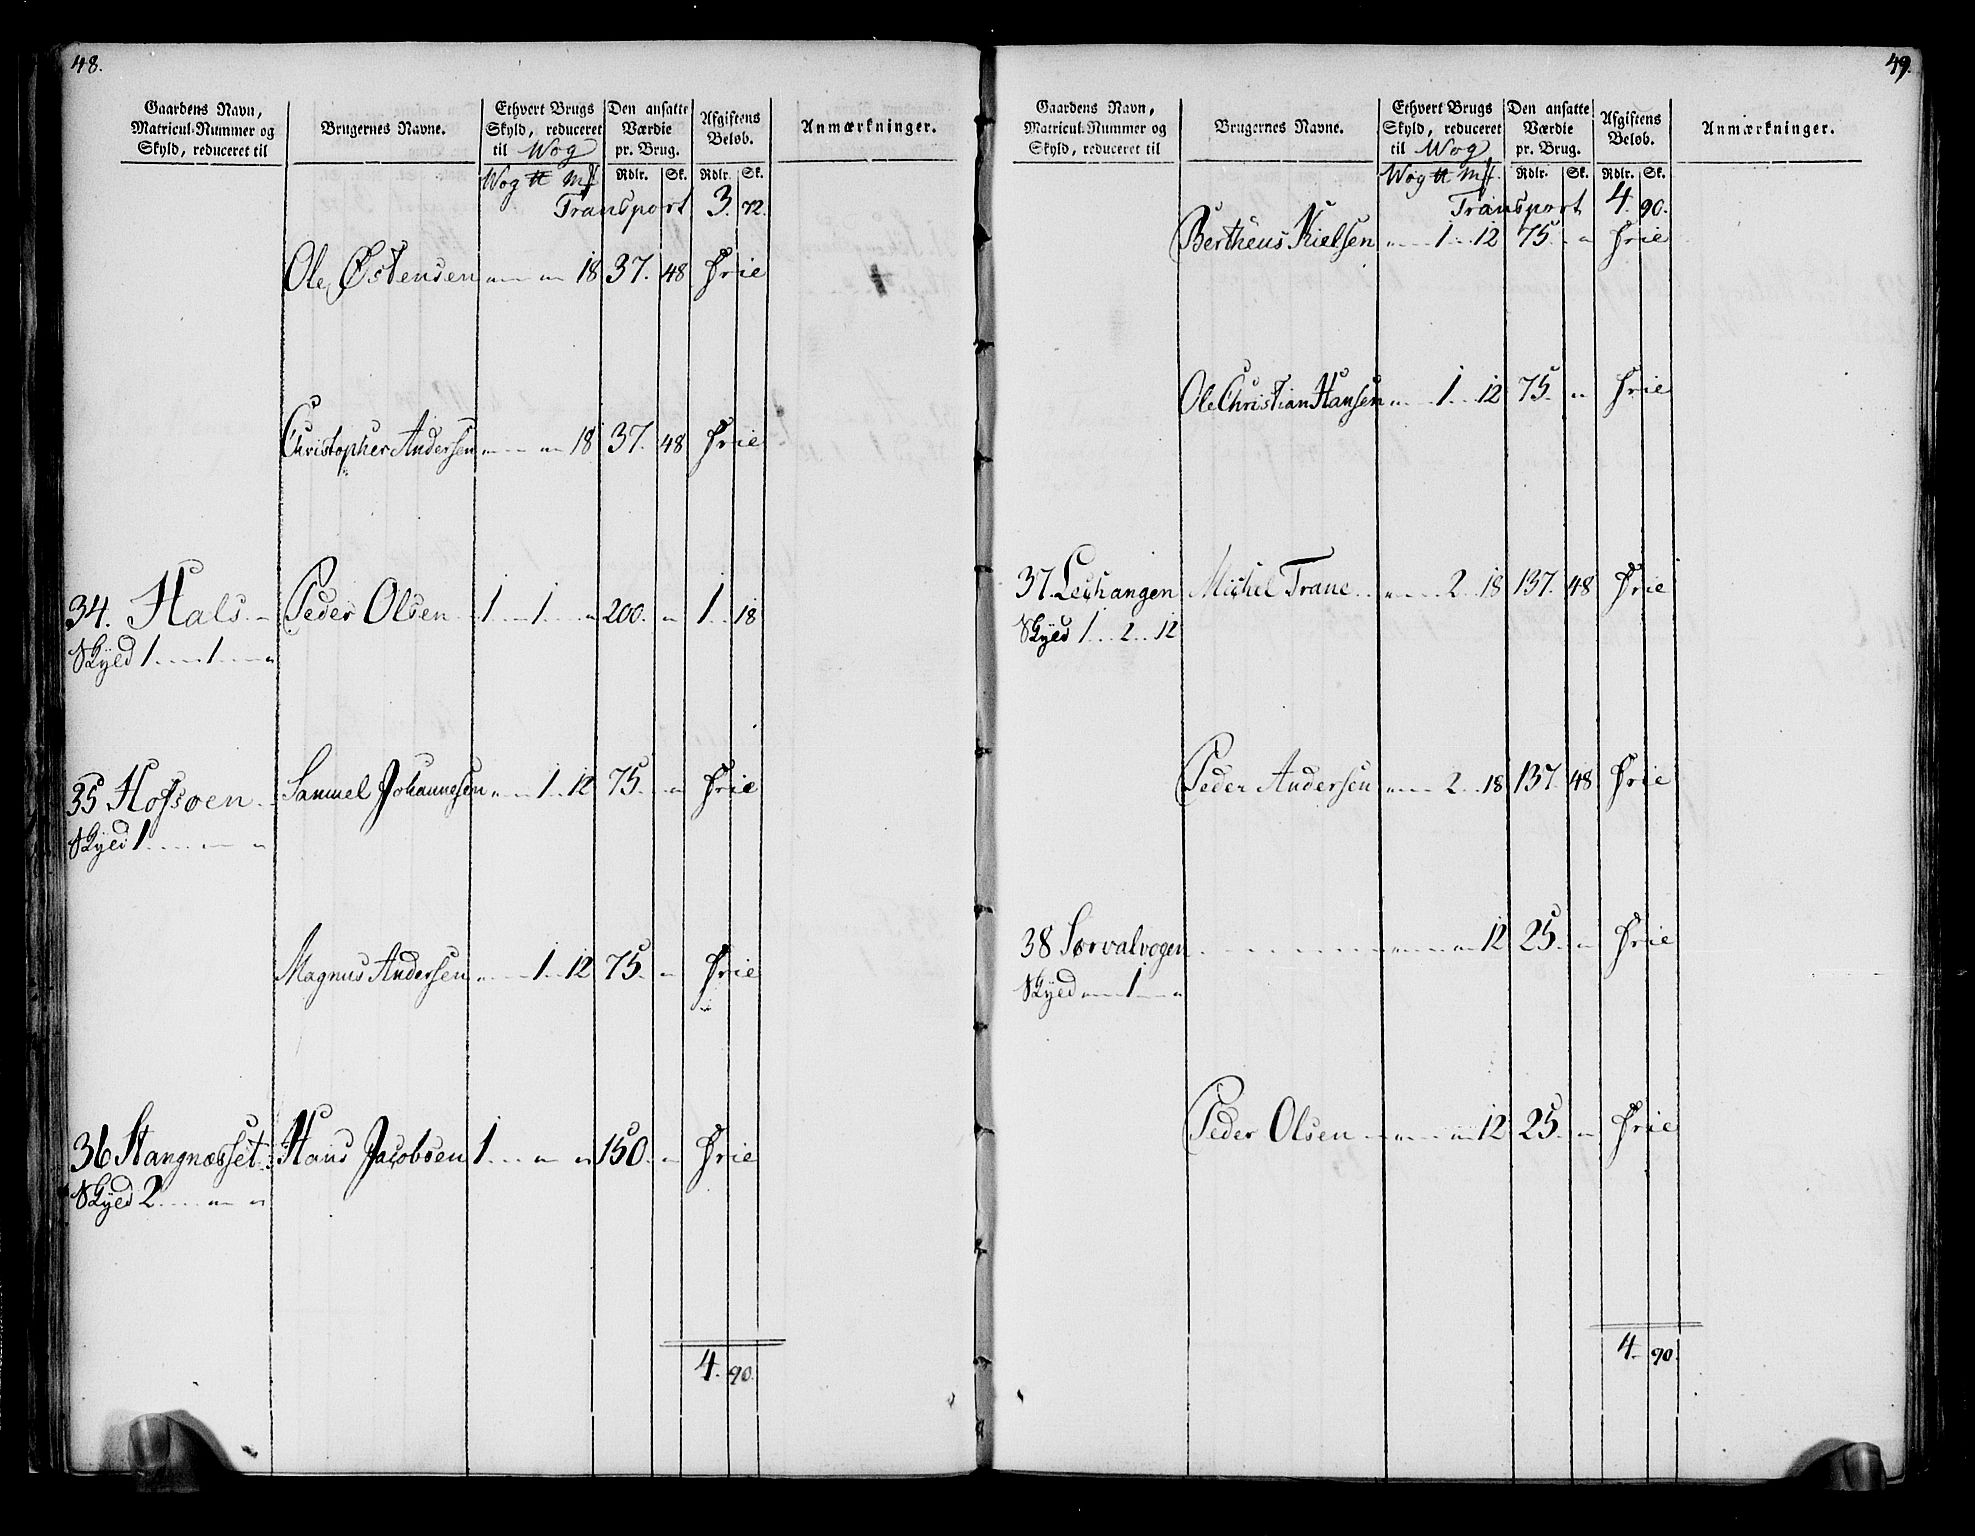 48.
Gaardens Navn, Matricul-Nummer og Skyld, reduceret til
Brugernes Navne.
Ethvert Brugs Skyld, reduceret til Wog
Den ansatte Værdie pr. Brug.
Afgiftens Beløb.
Anmærkninger.
Wog ℔ Mk Rdlr. Sk. Rdlr. Sk.
Transport 3. 72.
Ole Østensen „ „ 18 37. 48 Frie
Christopher Andersen „ „ 18 37. 48 Frie
34. Hals Peder Olsen 1 1 „ 200. „ 1 18
Skyld 1 1 „
35 Hofsøen Samuel Johannesen „ 1 12 75. „ Frie
Skyld 1 „ „
Magnus Andersen „ 1 12 75. „ Frie
36 Stangnæsset Hans Jacobsen 1 „ „ 150. „ Frie
Skyld 2 „ „
4. 90.
49.
Gaardens Navn, Matricul-Nummer og Skyld, reduceret til
Brugernes Navne.
Ethvert Brugs Skyld, reduceret til Wog
Den ansatte Værdie pr. Brug.
Afgiftens Beløb.
Anmærkninger.
Wog ℔ Mk. Rdlr. Sk. Rdlr. Sk.
Transport 4. 90.
Bertheus Nielsen „ 1 12 75. „ Frie
Ole Christian Hansen „ 1 12 75. „ Frie
37. Lexhangen Michel Trane „ 2 18 137. 48 Frie
Skyld 1 2 12
Peder Andersen „ 2 18 137. 48 Frie
38 Sørvalvogen „ „ 12 25. „ Frie
Skyld „ 1 „
Peder Olsen „ „ 12 25. „ Frie
4. 90.